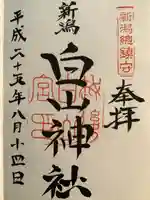 奉拝
新潟總鎮守
新潟
白山神社
平成二十五年八月十四日